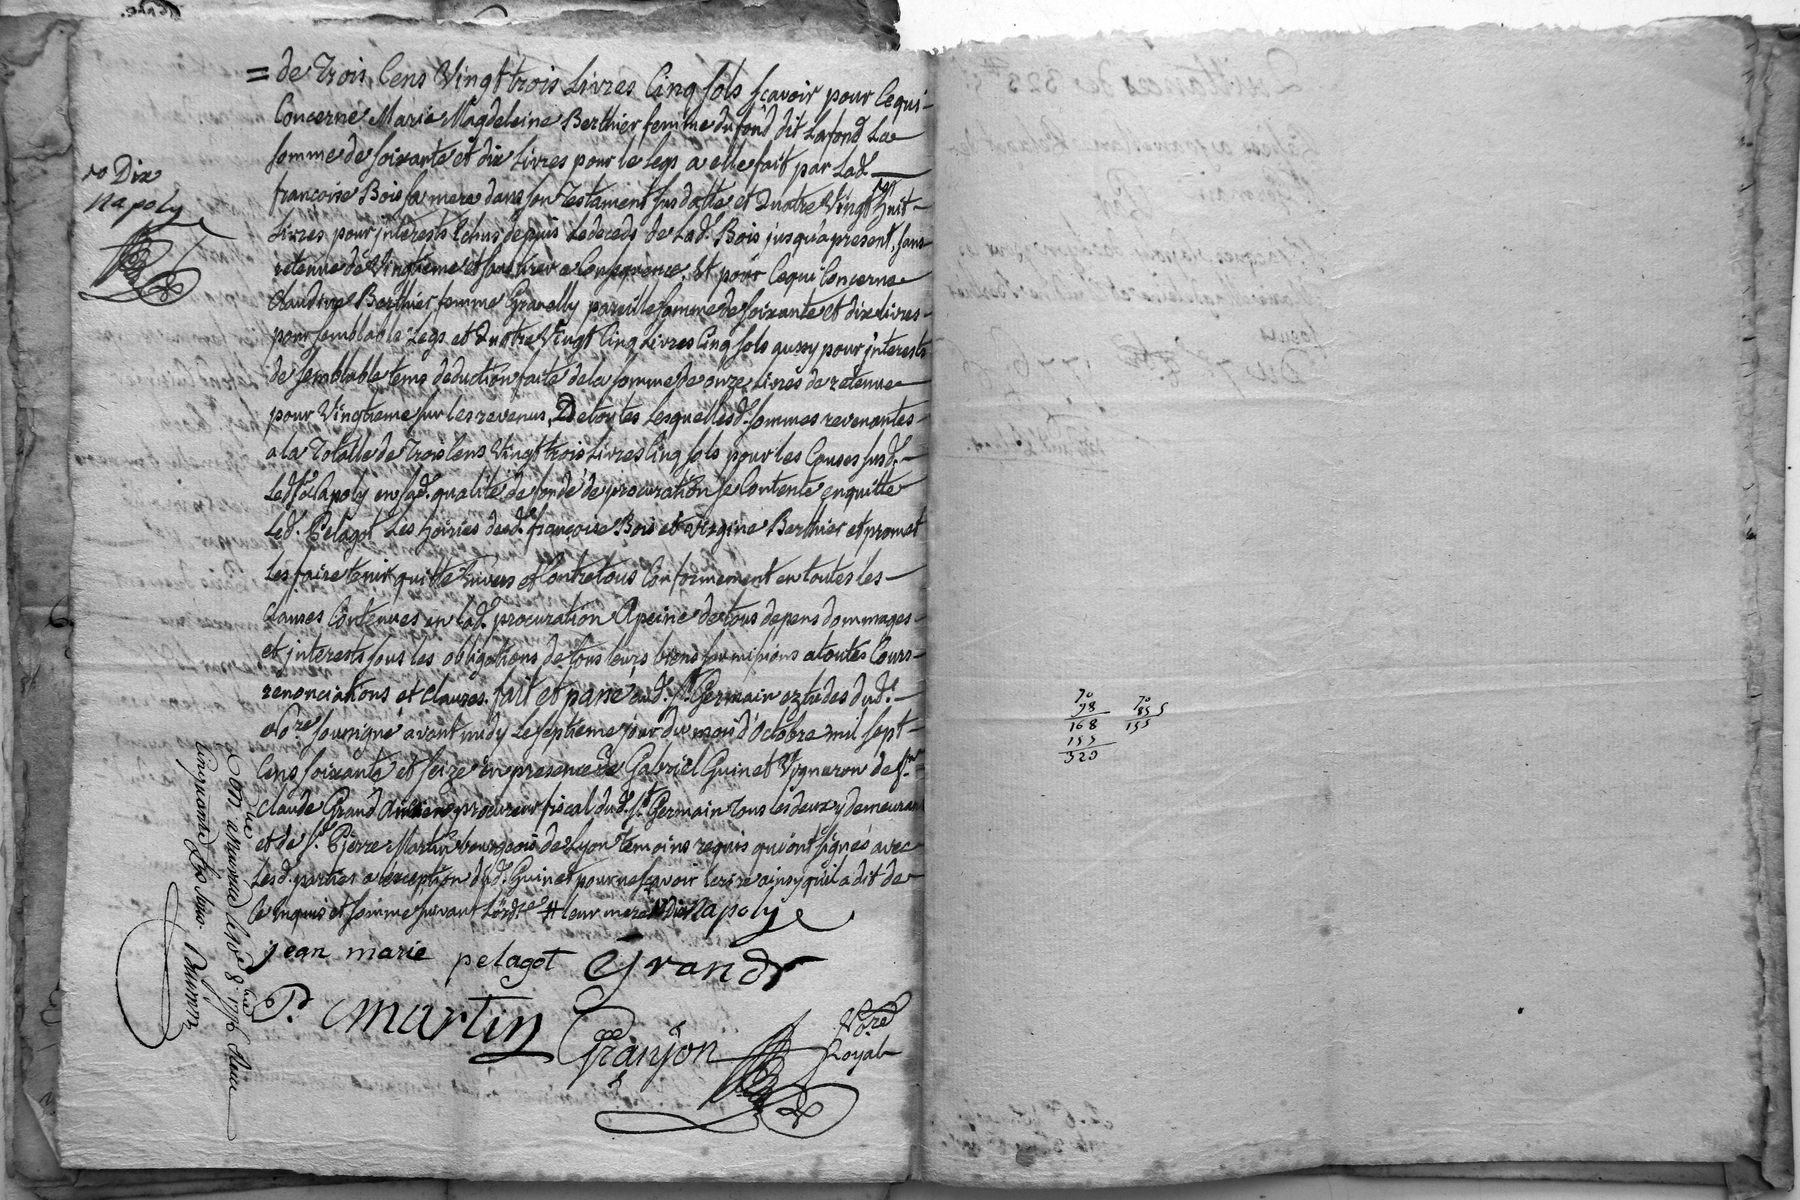 = de trois Cens Vingt trois Livres Cinq sols sçavoir pour Cequi-
Concerne Marie Magdeleine Berthier femme dufond dit Lafond La
somme de soixante et dix Livres pour le legs a elle fait par Lad.
francoise Bois sa mere dans son Testament susdatte et Quatre Vingt huit-
Livres pour jnterests Echus depuis Le deceds de Lad. Bois jusqu'apresent, sans
retenue de Vingtieme et sans tirer a Consequence, Et pour Cequi Concerne
Claudine Berthier femme Gravelly pareille somme de soixante et dix Livres-
pour semblable Legs et Quatre Vingt Cinq Livres Cinq sols aussy pour jnterests
de semblable tems déduction faite de la somme de onze Livres de retenue
pour Vingtieme sur les revenus, De toutes Lesquelles d. sommes revenantes-
a la Totalle de Trois Cens Vingt trois Livres Cinq sols pour les Causes susd.
Led. Sr Napoly en sad. qualité de fondé de procuration se Contente en quitte
Led. Pelagot Les hoiries desd. françoise Bois et virgine Berthier et promet
Les faire tenir quitte Envers et Contre tous Conformement en toutes les-
clauses Contenues en lad. procuration Apeine de tous depens dommages-
et jnterests sous les obligations de tous leurs biens soumissions a toutes Cours-
renonciations et clauses. fait et passé aud. St Germain ez etudes dud.
No.re soussigné avant midy Le septieme jour du mois d'Octobre mil sept-
Cens soixante et seize en presence de Gabriel Guinet Vigneron de Sr
Claude Grand Ancien procureur fiscal dud. St Germain tous les deux y demeurant
et de Sr. Pierre Martin bourgeois de Lyon temoins requis qui ont signés avec
Lesd. parties a l'exception dud. Guinet pour ne sçavoir Ecrire ainsy qu'il a dit de
Ce Enquis et somme suivant L'ord.ce # leur mere Dix Napoly
jean marie pelagot Grand
P. Martin Granjon No.re
Royal
Dix
Napoly
70
98
168
155
323
70
85 5
155